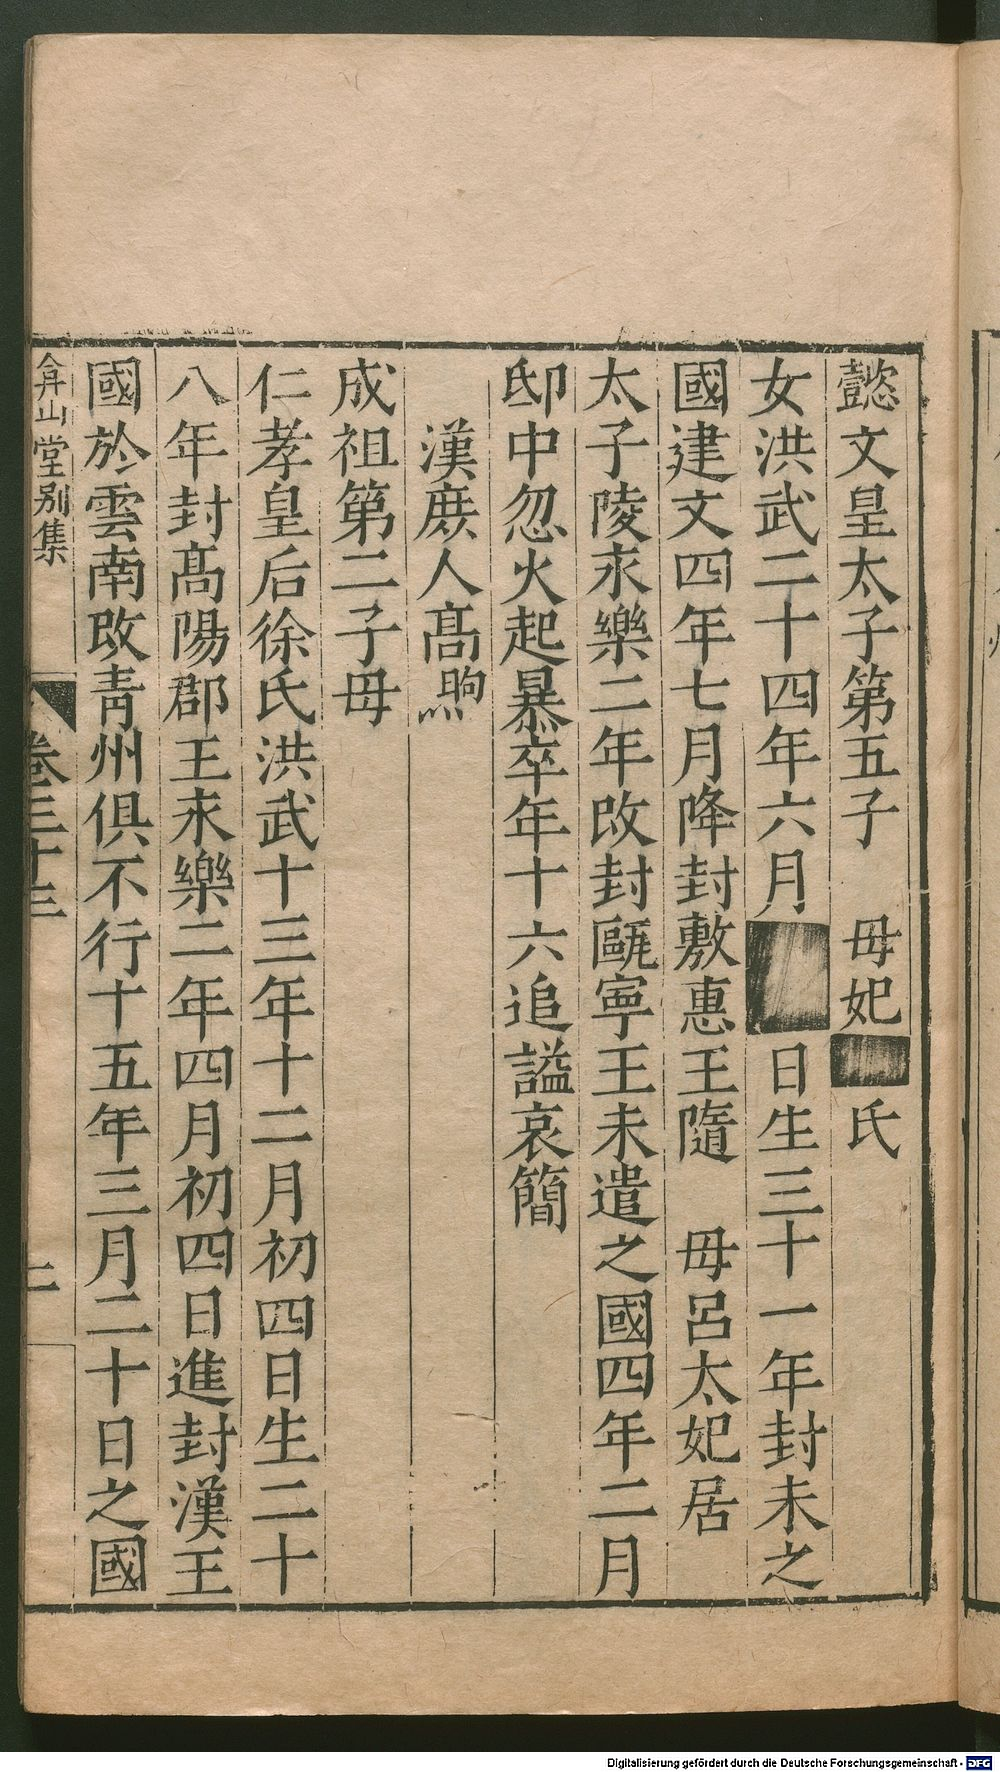 懿文皇太子第五子　母妃■氏
女洪武二十四年六月■日生三十一年封未之
國建文四年七月降封敷惠王隨　母呂太妃居
太子陵永樂二年改封甌寧王未遣之國四年二月
邸中忽火起暴卒年十六追謚哀簡
漢庶人高煦
成祖第二子母
仁孝皇后徐氏洪武十三年十二月初四日生二十
八年封高陽郡王永樂二年四月初四日進封漢王
國於雲南改青州俱不行十五年三月二十日之國
弇山堂別集　卷三十三　二
Digitalisierung gefördert durch die Deutsche Forschungsgemeinschaft - DFG